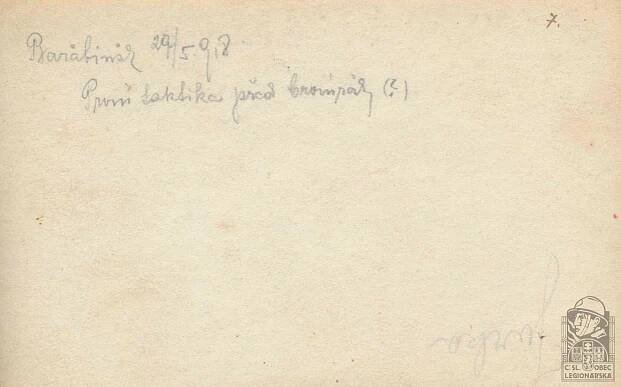 7.
Barabinsk 29/5. 918
První taktika před (?)
Č.SL. OBEC
LEGIONÁŘSKÁ